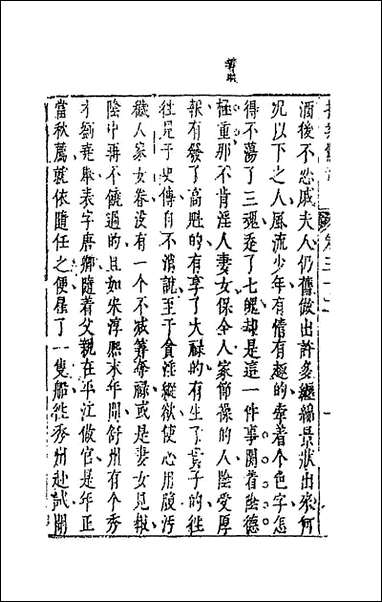 卷三十二
酒後不忍戚夫人仍舊做出許多纏綿景狀出來何
况以下之人風流少年有情有趣的牽着個色字怎
得不蕩了三魂走了七魄却是這一件事關着陰德
極重那不肯淫人妻女保全人家節操的人陰受厚
報有發了高魁的有享了大祿的有生了貴子的往
往見于史傳自不消說至于貪淫縱欲使心用腹污
穢人家女眷没有一个不减筭奪祿或是妻女見報
陰中再不饒過的且如宋淳熙末年間舒州有个秀
才劉堯舉表字唐卿隨着父親在平江做官是年正
當秋薦就依隨任之便雇了一隻船往秀州赴試開